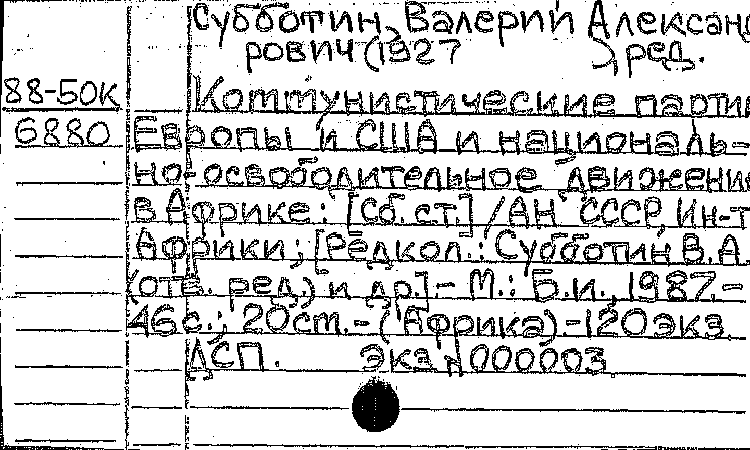 Субботин, Валерий Александ
рович (1927 ), ред.
88-50к Коммунистические парти
6880 Европы и США и националь-
но-освободительное движени
в Африке: [Сб. ст.] / АН СССР, Ин-т
Африки; [Редкол.: Субботин В.А.
(отв. ред.) и др.].- М.: Б.и., 1987.-
46 с.; 20 cm.-(Африка)-120 экз.
ДСП. Экз N 000003